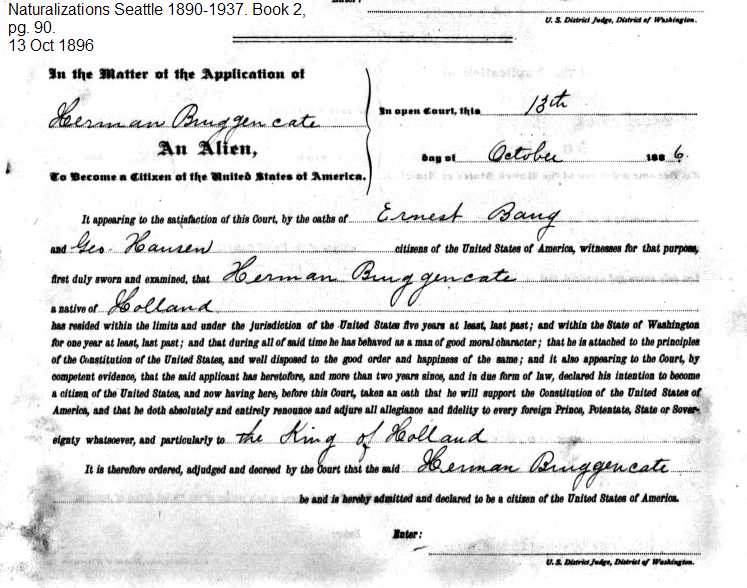 Naturalizations Seattle 1890-1937. Book 2,
pg. 90.
13 Oct 1896
Enter:
U. S. District Judge, District of Washington.
In the Matter of the Application of
Herman Bruggencate
An Alien,
To Become a Citizen of the United States of America.
In open Court, this 13th
day of October 188 6.
It appearing to the satisfaction of this Court, by the oaths of Ernest Bang
and Geo. Hansen citizens of the United States of America, witnesses for that purpose,
first duly sworn and examined, that Herman Bruggencate
a native of Holland
has resided within the limits and under the jurisdiction of the United States five years at least, last past; and within the State of Washington
for one year at least, last past; and that during all of said time he has behaved as a man of good moral character; that he is attached to the principles
of the Constitution of the United States, and well disposed to the good order and happiness of the same; and it also appearing to the Court, by
competent evidence, that the said applicant has heretofore, and more than two years since, and in due form of law, declared his intention to become
a citizen of the United States, and now having here, before this Court, taken an oath that he will support the Constitution of the United States of
America, and that he doth absolutely and entirely renounce and adjure all allegiance and fidelity to every foreign Prince, Potentate, State or Sover-
eignty whatsoever, and particularly to the King of Holland
It is therefore ordered, adjudged and decreed by the Court that the said Herman Bruggencate
be and is hereby admitted and declared to be a citizen of the United States of America.
Enter:
U. S. District Judge, District of Washington.